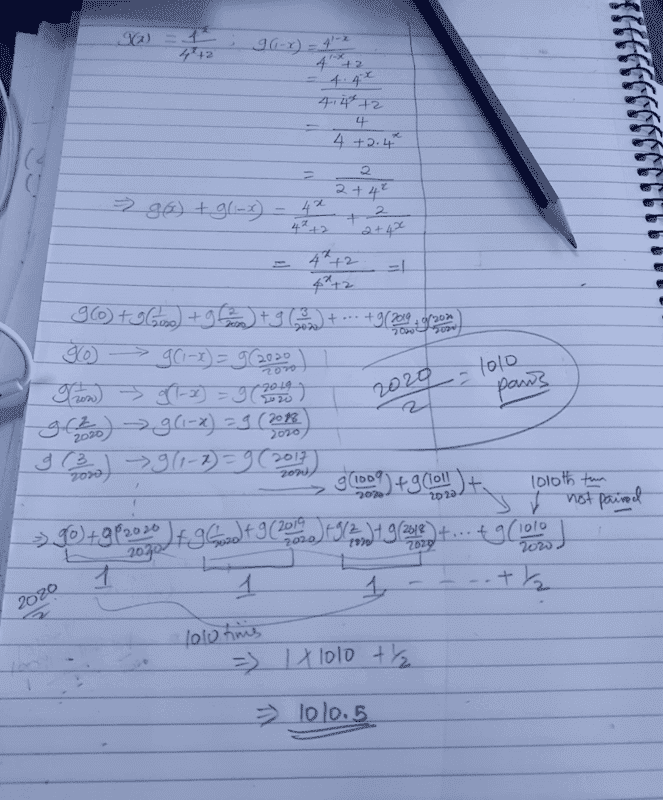 g(x) = 4^x / 4^x+2 ; g(1-x) = 4^1-x / 4^1-x+2
= 4·4^x / 4·4^x+2
= 4 / 4+2·4^x
= 2 / 2+4^x
⇒ g(x) + g(1-x) = 4^x / 4^x+2 + 2 / 2+4^x
= 4^x+2 / 4^x+2 = 1
g(0)+g(1/2020)+g(2/2020)+g(3/2020)+...+g(2019/2020)+g(2020/2020)
g(0) → g(1-x) = g(2020/2020)
g(1/2020) → g(1-x) = g(2019/2020)
2020/2 = 1010 pairs
g(2/2020) → g(1-x) = g(2018/2020)
g(3/2020) → g(1-x) = g(2017/2020)
→ g(1009/2020)+g(1011/2020)+
1010th
not paired
⇒ g(0)+g(2020/2020)+g(1/2020)+g(2019/2020)+g(2/2020)+g(2018/2020)+...+g(1010/2020)
1 1 1 - - - ..+ 1/2
2020/2
1010 times
⇒ 1 X 1010 + 1/2
⇒ 1010.5